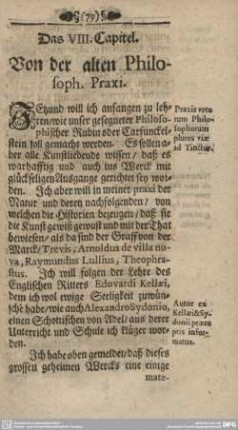 §(79)§
Das VIII. Capitel.
Von der alten Philo-
soph. Praxi.
JEtzund will ich anfangen zu leh-
ren/ wie unser gesegneter Philoso-
phischer Rubin oder Carfunckel-
stein soll gemacht werden. Es sollen a-
ber alle Kunstliebende wissen/ daß es
warhafftig und auch ins Werck mit
glückseligen Ausgange gerichtet sey wor-
den. Ich aber will in meiner praxi der
Natur und deren nachfolgenden/ von
welchen die Historien bezeugen/ daß sie
die Kunst gewiß gewust und mit der That
bewiesen/ als da sind der Graff von der
Marck/ Trevis, Arnoldus de villa no-
va, Raymundus Lullius, Theophra-
stus. Ich will folgen der Lehre des
Englischen Ritters Edovardi Kellæi,
dem ich wol ewige Seeligkeit gewün-
sche habe/ wie auch Alexandro Sydonio,
einen Schottischen von Adel/ aus derer
Unterricht und Schule ich klüger wor-
den.
Ich habe oben gemeldet/ daß dieses
grossen geheimen Wercks eine einige
mate-
Praxis vete-
rum Philo-
sophorum
plures viæ
ad Tinctur.
Autor ex
Kellæi & Sy-
donii præce-
ptis infor-
matus.